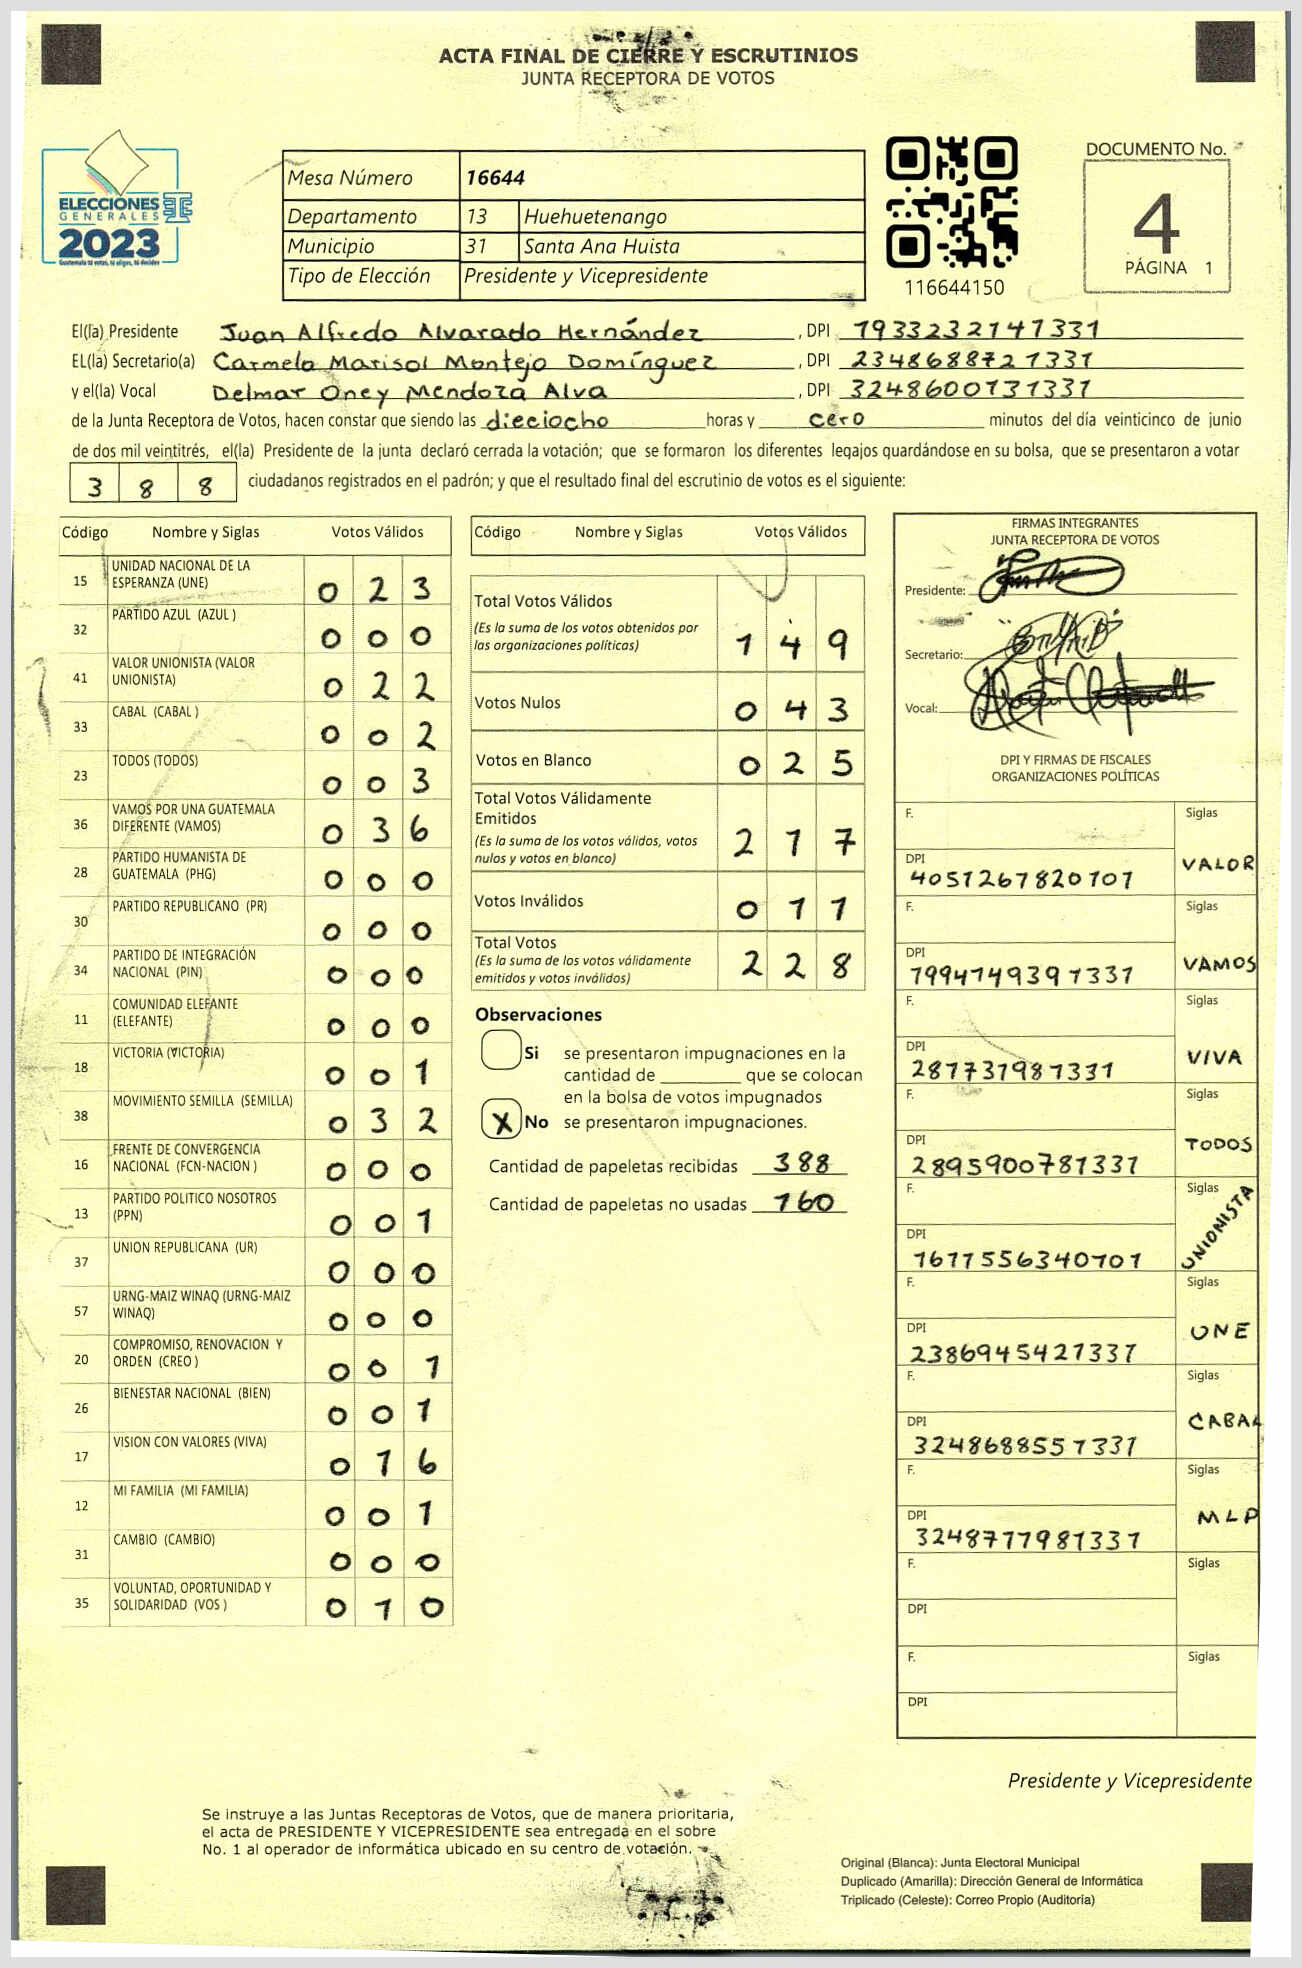 ACTA FINAL DE CIERRE Y ESCRUTINIOS
JUNTA RECEPTORA DE VOTOS
ELECCIONES
GENERALES
2023
Guatemala tú votas, tú eliges, tú decides
Mesa Número 16644
Departamento 13 Huehuetenango
Municipio 31 Santa Ana Huista
Tipo de Elección Presidente y Vicepresidente
116644150
DOCUMENTO No.
4
PÁGINA 1
El(la) Presidente Juan Alfredo Alvarado Hernández, DPI 1933232147331
EL(la) Secretario(a) Carmela Marisol Montejo Domínguez, DPI 2348688721331
y el(la) Vocal Delmar Oney Mendoza Alva, DPI 3248600131331
de la Junta Receptora de Votos, hacen constar que siendo las dieciocho horas y cero minutos del día veinticinco de junio
de dos mil veintitrés, el(la) Presidente de la junta declaró cerrada la votación; que se formaron los diferentes legajos guardándose en su bolsa, que se presentaron a votar
3 8 8 ciudadanos registrados en el padrón; y que el resultado final del escrutinio de votos es el siguiente:
Código Nombre y Siglas Votos Válidos
15 UNIDAD NACIONAL DE LA
ESPERANZA (UNE) 0 2 3
32 PARTIDO AZUL (AZUL ) 0 0 0
41 VALOR UNIONISTA (VALOR
UNIONISTA) 0 2 2
33 CABAL (CABAL ) 0 0 2
23 TODOS (TODOS) 0 0 3
36 VAMOS POR UNA GUATEMALA
DIFERENTE (VAMOS) 0 3 6
28 PARTIDO HUMANISTA DE
GUATEMALA (PHG) 0 0 0
30 PARTIDO REPUBLICANO (PR) 0 0 0
34 PARTIDO DE INTEGRACIÓN
NACIONAL (PIN) 0 0 0
11 COMUNIDAD ELEFANTE
(ELEFANTE) 0 0 0
18 VICTORIA (VICTORIA) 0 0 1
38 MOVIMIENTO SEMILLA (SEMILLA) 0 3 2
16 FRENTE DE CONVERGENCIA
NACIONAL (FCN-NACION ) 0 0 0
13 PARTIDO POLITICO NOSOTROS
(PPN) 0 0 1
37 UNION REPUBLICANA (UR) 0 0 0
57 URNG-MAIZ WINAQ (URNG-MAIZ
WINAQ) 0 0 0
20 COMPROMISO, RENOVACION Y
ORDEN (CREO ) 0 0 1
26 BIENESTAR NACIONAL (BIEN) 0 0 1
17 VISION CON VALORES (VIVA) 0 1 6
12 MI FAMILIA (MI FAMILIA) 0 0 1
31 CAMBIO (CAMBIO) 0 0 0
35 VOLUNTAD, OPORTUNIDAD Y
SOLIDARIDAD (VOS ) 0 1 0
Código Nombre y Siglas Votos Válidos
Total Votos Válidos
(Es la suma de los votos obtenidos por
las organizaciones políticas) 1 4 9
Votos Nulos 0 4 3
Votos en Blanco 0 2 5
Total Votos Válidamente
Emitidos
(Es la suma de los votos válidos, votos
nulos y votos en blanco) 2 1 7
Votos Inválidos 0 1 1
Total Votos
(Es la suma de los votos válidamente
emitidos y votos inválidos) 2 2 8
Observaciones
Si se presentaron impugnaciones en la
cantidad de ________ que se colocan
en la bolsa de votos impugnados
X No se presentaron impugnaciones.
Cantidad de papeletas recibidas 388
Cantidad de papeletas no usadas 160
FIRMAS INTEGRANTES
JUNTA RECEPTORA DE VOTOS
Presidente:
Secretario:
Vocal:
DPI Y FIRMAS DE FISCALES
ORGANIZACIONES POLÍTICAS
F. Siglas
DPI 4051267820101 VALOR
F. Siglas
DPI 1994149391331 VAMOS
F. Siglas
DPI 287731981331 VIVA
F. Siglas
DPI 2895900781331 TODOS
F. Siglas
DPI 1611556340101 UNIONISTA
F. Siglas
DPI 2386945421331 UNE
F. Siglas
DPI 3248688551331 CABAL
F. Siglas
DPI 3248777981331 MLP
F. Siglas
DPI
F. Siglas
DPI
Presidente y Vicepresidente
Se instruye a las Juntas Receptoras de Votos, que de manera prioritaria,
el acta de PRESIDENTE Y VICEPRESIDENTE sea entregada en el sobre
No. 1 al operador de informática ubicado en su centro de votación.
Original (Blanca): Junta Electoral Municipal
Duplicado (Amarilla): Dirección General de Informática
Triplicado (Celeste): Correo Propio (Auditoría)